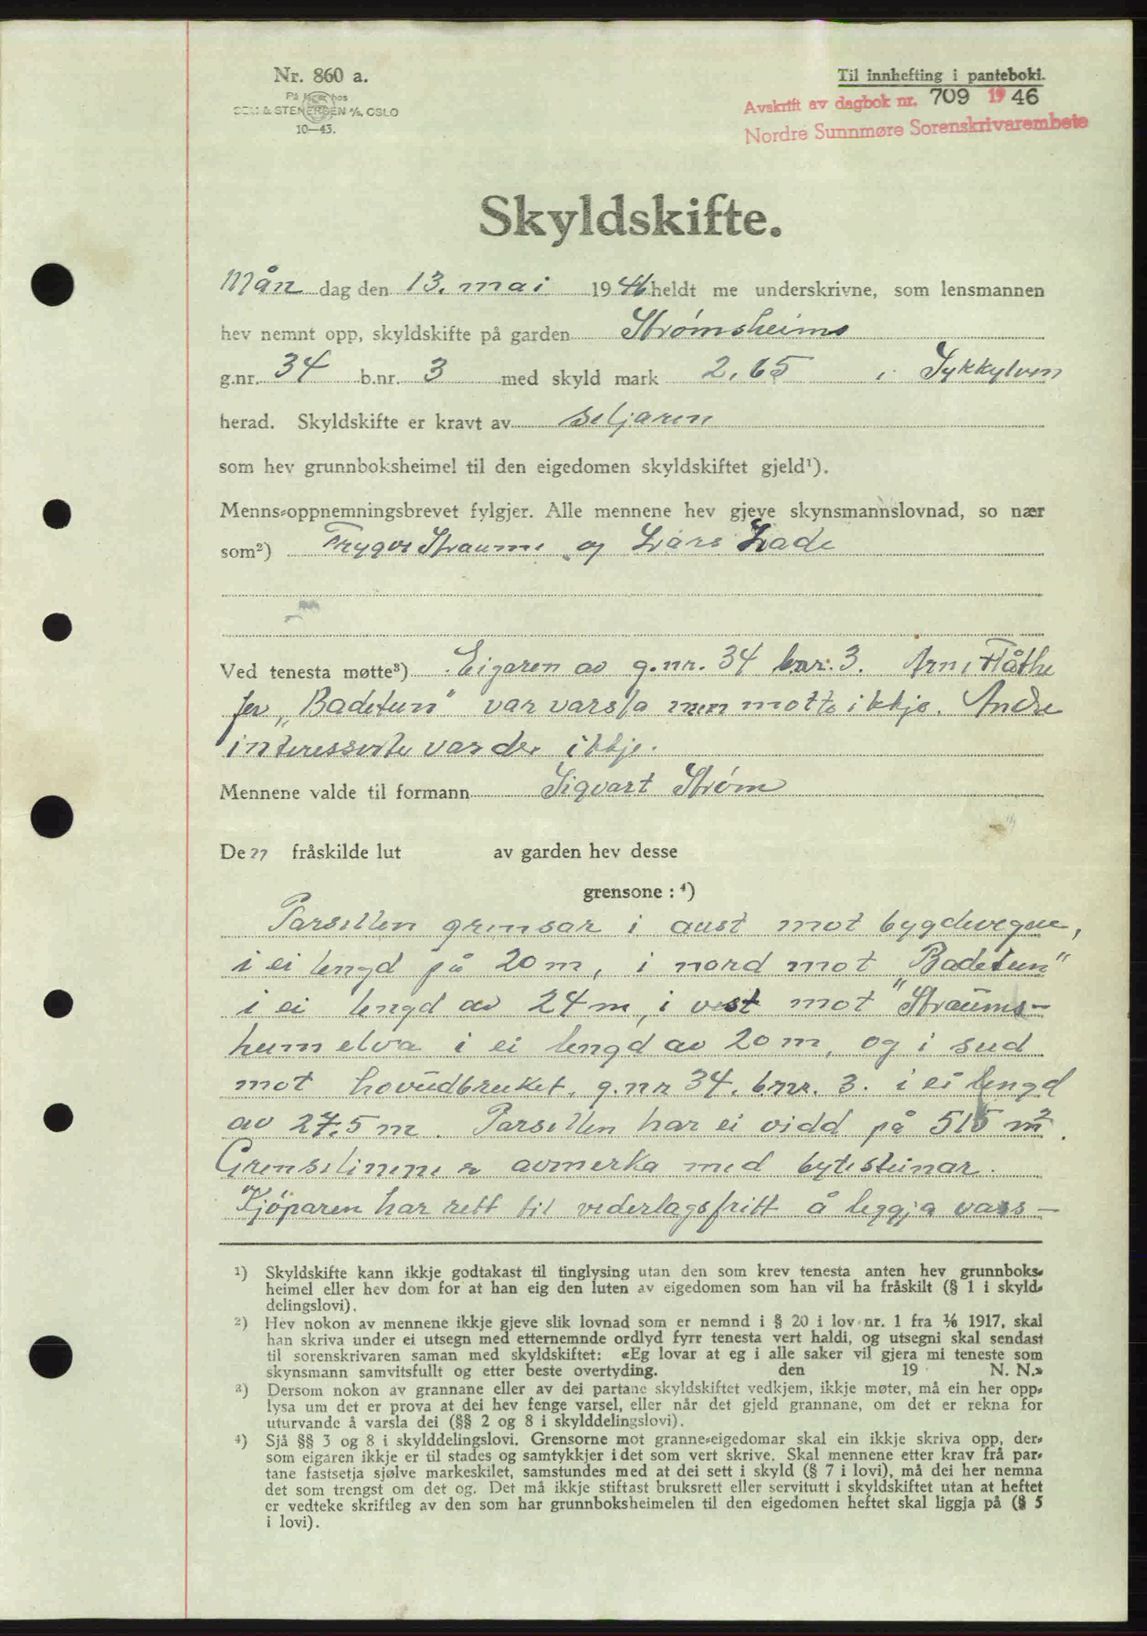 Nr. 860 a.
På lager hos
SEM & STENERSEN A/S, OSLO
10—43.
Til innhefting i pantebok.
Avskrift av dagbok nr. 709 1946
Nordre Sunnmøre Sorenskrivarembete
Skyldskifte.
Mån dag den 13. mai 1946 heldt me underskrivne, som lensmannen
hev nemnt opp, skyldskifte på garden Strømsheims
g.nr. 34 b.nr. 3 med skyld mark 2,65 i Sykkylven
herad. Skyldskifte er kravt av seljaren
som hev grunnboksheimel til den eigedomen skyldskiftet gjeld¹).
Menns-oppnemningsbrevet fylgjer. Alle mennene hev gjeve skynsmannslovnad, so nær
som²) Trygve Straume og Lars Lade
Ved tenesta møtte³) Eigaren av g.nr. 34 b.nr. 3. Arne Flåthe
for „Badetun" var varsla men møtte ikkje. Andre
interesserte var der ikkje.
Mennene valde til formann Sigvart Strøm
Den fråskilde lut av garden hev desse
grensone : ⁴)
Parsellen grensar i aust mot bygdevegen,
i ei lengd på 20 m, i nord mot "Badetun"
i ei lengd av 24 m, i vest mot "Straums-
heimelva i ei lengd av 20 m, og i sud
mot hovudbruket, g.nr 34. b.nr. 3. i ei lengd
av 27.5 m. Parsellen har ei vidd på 515 m².
Grenselinene er avmerka med bytesteinar.
Kjöparen har rett til vederlagsfritt å leggja vass-
¹) Skyldskifte kann ikkje godtakast til tinglysing utan den som krev tenesta anten hev grunnboks-
heimel eller hev dom for at han eig den luten av eigedomen som han vil ha fråskilt (§ 1 i skyld-
delingslovi).
²) Hev nokon av mennene ikkje gjeve slik lovnad som er nemnd i § 20 i lov nr. 1 fra 1/6 1917, skal
han skriva under ei utsegn med etternemnde ordlyd fyrr tenesta vert haldi, og utsegni skal sendast
til sorenskrivaren saman med skyldskiftet: «Eg lovar at eg i alle saker vil gjera mi teneste som
skynsmann samvitsfullt og etter beste overtyding. den 19 N. N.»
³) Dersom nokon av grannane eller av dei partane skyldskiftet vedkjem, ikkje møter, må ein her opp-
lysa um det er prova at dei hev fenge varsel, eller når det gjeld grannane, om det er rekna for
uturvande å varsla dei (§§ 2 og 8 i skylddelingslovi).
⁴) Sjå §§ 3 og 8 i skylddelingslovi. Grensorne mot granne-eigedomar skal ein ikkje skriva opp, der-
som eigaren ikkje er til stades og samtykkjer i det som vert skrive. Skal mennene etter krav frå par-
tane fastsetja sjølve markeskilet, samstundes med at dei sett i skyld (§ 7 i lovi), må dei her nemna
det som trengst om det og. Det må ikkje stiftast bruksrett eller servitutt i skyldskiftet utan at heftet
er vedteke skriftleg av den som har grunnboksheimelen til den eigedomen heftet skal liggja på (§ 5
i lovi).